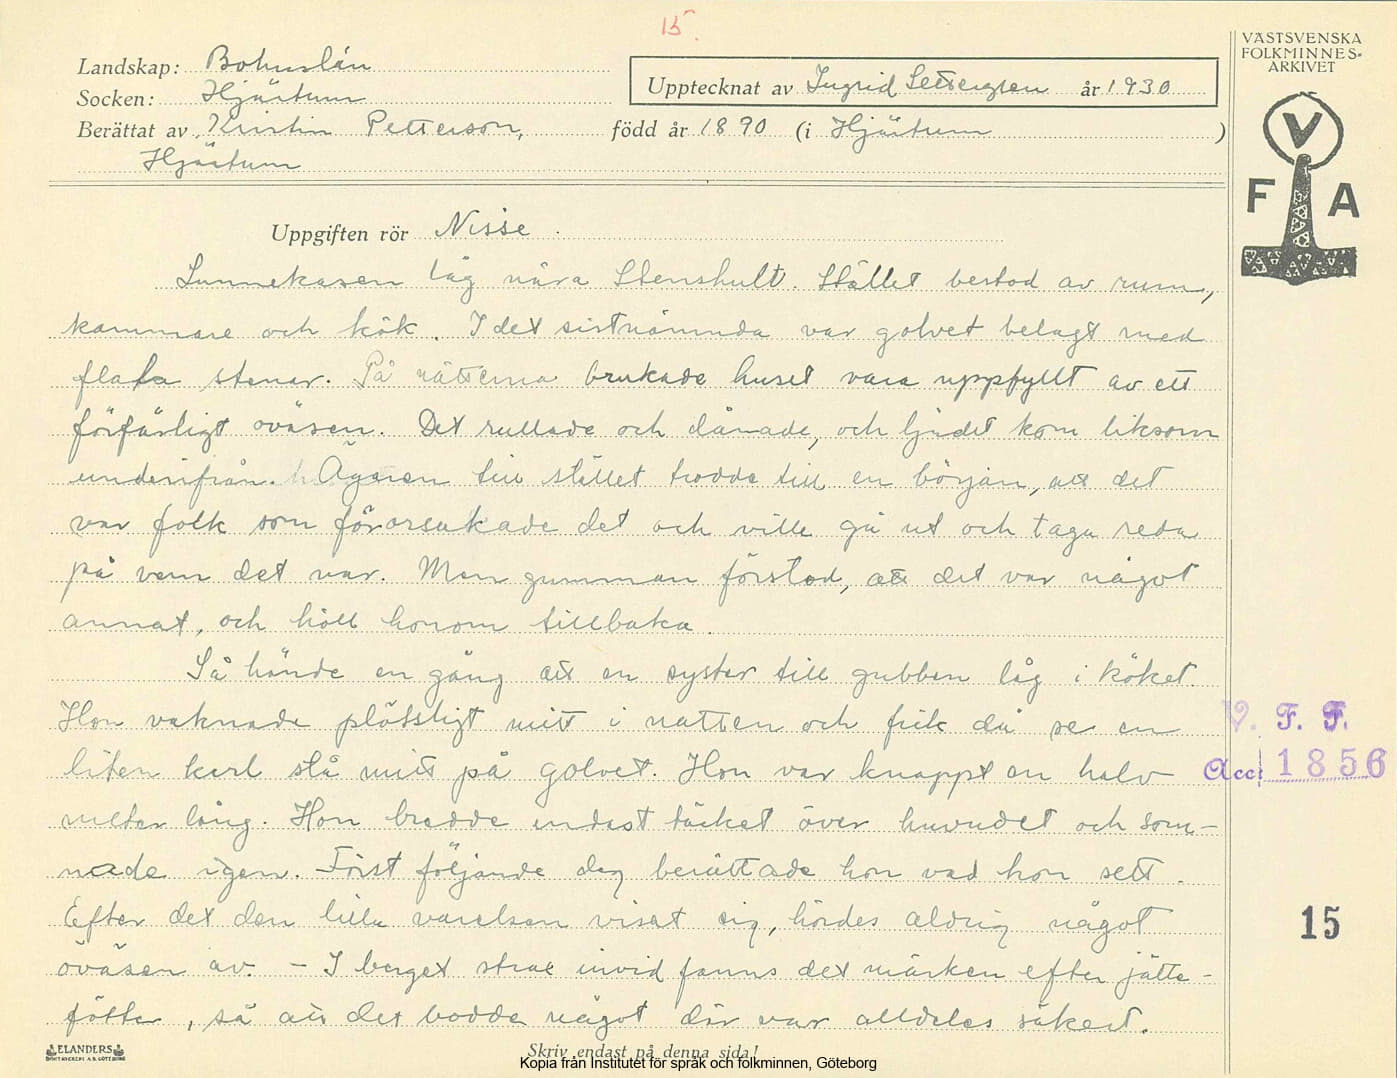 15.
VÄSTSVENSKA
FOLKMINNES-
ARKIVET
Landskap: Bohuslän
Upptecknat av Ingrid Settergren år 1930
Socken: Hjärtum
Berättat av Kristin Petterson, född år 1890 (i Hjärtum )
Hjärtum
V
F A
Uppgiften rör Nisse .
Sunnekasen låg nära Stenshult. Stället bestod av rum,
kammare och kök. I det sistnämnda var golvet belagt med
flata stenar. På nätterna brukade huset vara uppfyllt av ett
förfärligt oväsen. Det rullade och dånade, och ljudet kom liksom
underifrån. Ägaren till stället trodde till en början, att det
var folk som förorsakade det och ville gå ut och taga reda
på vem det var. Men gumman förstod, att det var något
annat, och höll honom tillbaka.
Så hände en gång att en syster till gubben låg i köket.
Hon vaknade plötsligt mitt i natten och fick då se en
liten karl stå mitt på golvet. Hon var knappt en halv
meter lång. Hon bredde endast täcket över huvudet och som-
nade igen. Först följande dag berättade hon vad hon sett.
Efter det den lilla varelsen visat sig, hördes aldrig något
oväsen av. - I berget strax invid fanns det märken efter jätte-
fötter, så att det bodde något där var alldeles säkert.
V. F. F.
Acc: 1856
15
ELANDERS
Skriv endast på denna sida!
Kopia från Institutet för språk och folkminnen, Göteborg